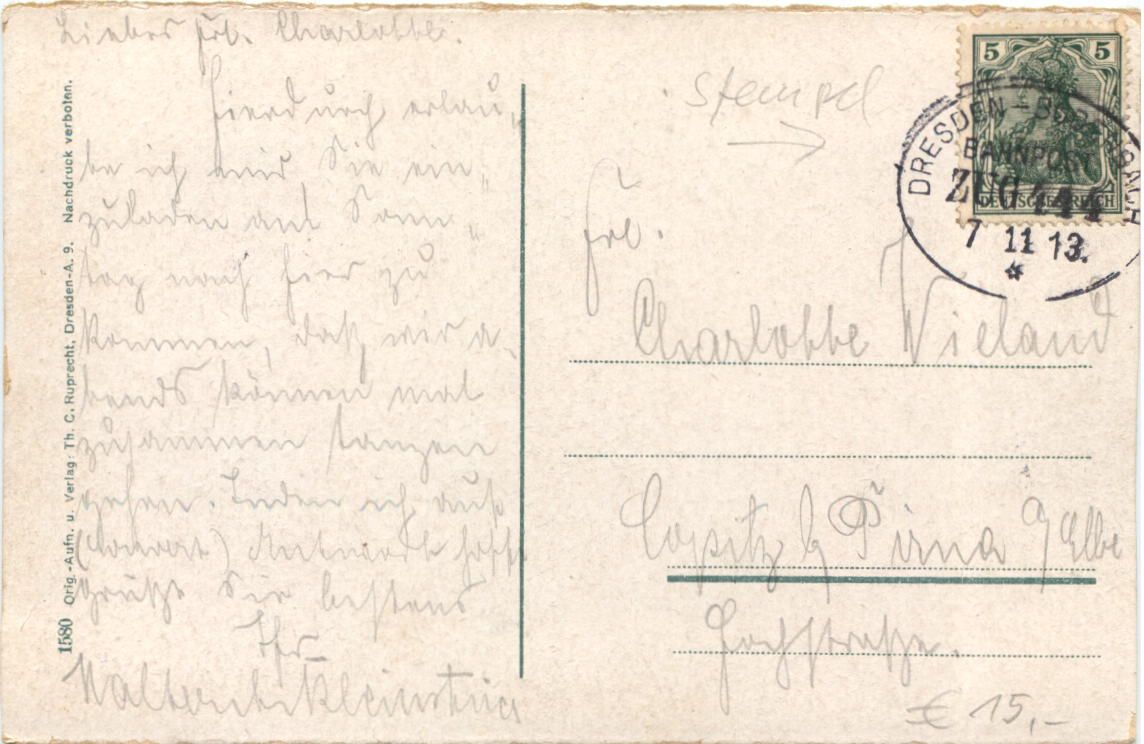 Liebes Frl. Charlotte.
Hierdurch erlau„
be ich mir Sie ein„
zuladen auf Sonn„
tag nach hier zu
kommen, daß wir a„
bends können mal
zusammen tanzen
gehen. Indem ich auf
Antwort hoffe
grüße Sie bestens
Ihr
1580 Orig.-Aufn. u. Verlag: Th. C. Ruprecht, Dresden-A. 9. Nachdruck verboten.
stempel
5 5
DEUTSCHES REICH
DRESDEN
BAHNPOST
ZUG
7 11 13.
Frl.
Charlotte Wieland
Copitz b Pirna a/Elbe
Hochstraße.
€ 15,-